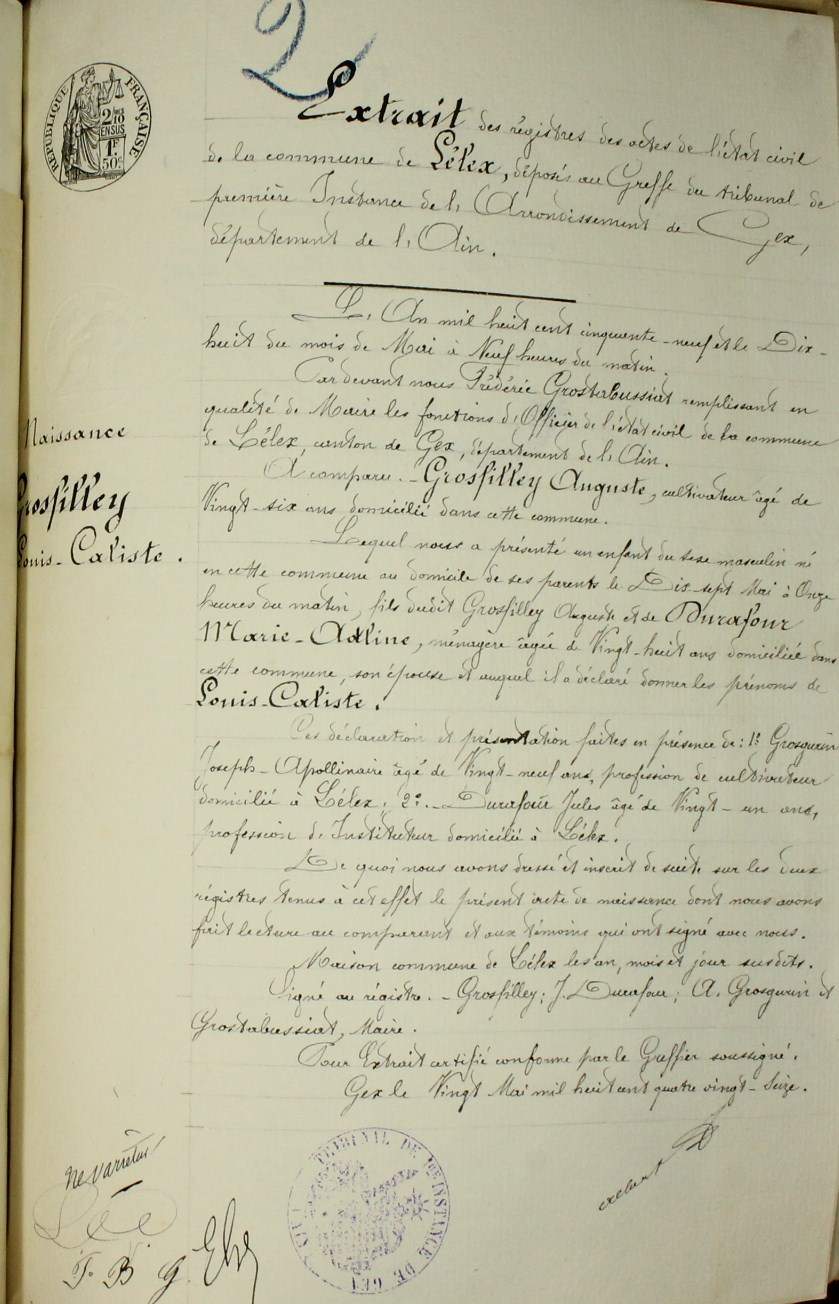 2
RÉPUBLIQUE FRANÇAISE
2/10
EN SUS
1F
50c
Extrait des régistres des actes de l'état civil
de la commune de Lélex, déposés au Greffe du tribunal de
première Instance de l'Arrondissement de Gex,
département de l'Ain.
L'An mil huit cent cinquante-neuf et le Dix-
huit du mois de Mai à Neuf heures du matin.
Pardevant nous Frédéric Grostabussiat remplissant en
qualité de Maire les fonctions d'Officier de l'état civil de la commune
de Lélex, canton de Gex, département de l'Ain.
A comparu. - Grosfilley Auguste, cultivateur âgé de
Vingt-six ans domicilié dans cette commune.
Naissance
Grosfilley
Louis-Caliste.
Lequel nous a présenté un enfant du sexe masculin né
en cette commune au domicile de ses parents le Dix-sept Mai à Onze
heures du matin, fils dudit Grosfilley Auguste et de Durafour
Marie-Adline, ménagère âgée de Vingt-huit ans domiciliée dans
cette commune, son épouse et auquel il a déclaré donner les prénoms de
Louis-Caliste.
Ces déclaration et présentation faites en présence de: 1º Grosgurin
Joseph-Apollinaire âgé de Vingt-neuf ans, profession de cultivateur
domicilié à Lélex; 2º.- Durafour Jules âgé de Vingt-un ans,
profession d'Instituteur domicilié à Lélex.
De quoi nous avons dressé et inscrit de suite sur les deux
régistres tenus à cet effet le présent acte de naissance dont nous avons
fait lecture au comparant et aux témoins qui ont signé avec nous.
Maison commune de Lélex les an, mois et jour susdits.
Signé au régistre. - Grosfilley; J. Durafour; A. Grosgurin et
Grostabussiat, Maire.
Pour Extrait certifié conforme par le Greffier soussigné.
Gex le Vingt Mai mil huit cent quatre vingt-seize.
Ne varietur
TRIBUNAL DE 1re INSTANCE DE GEX
F. B. G.